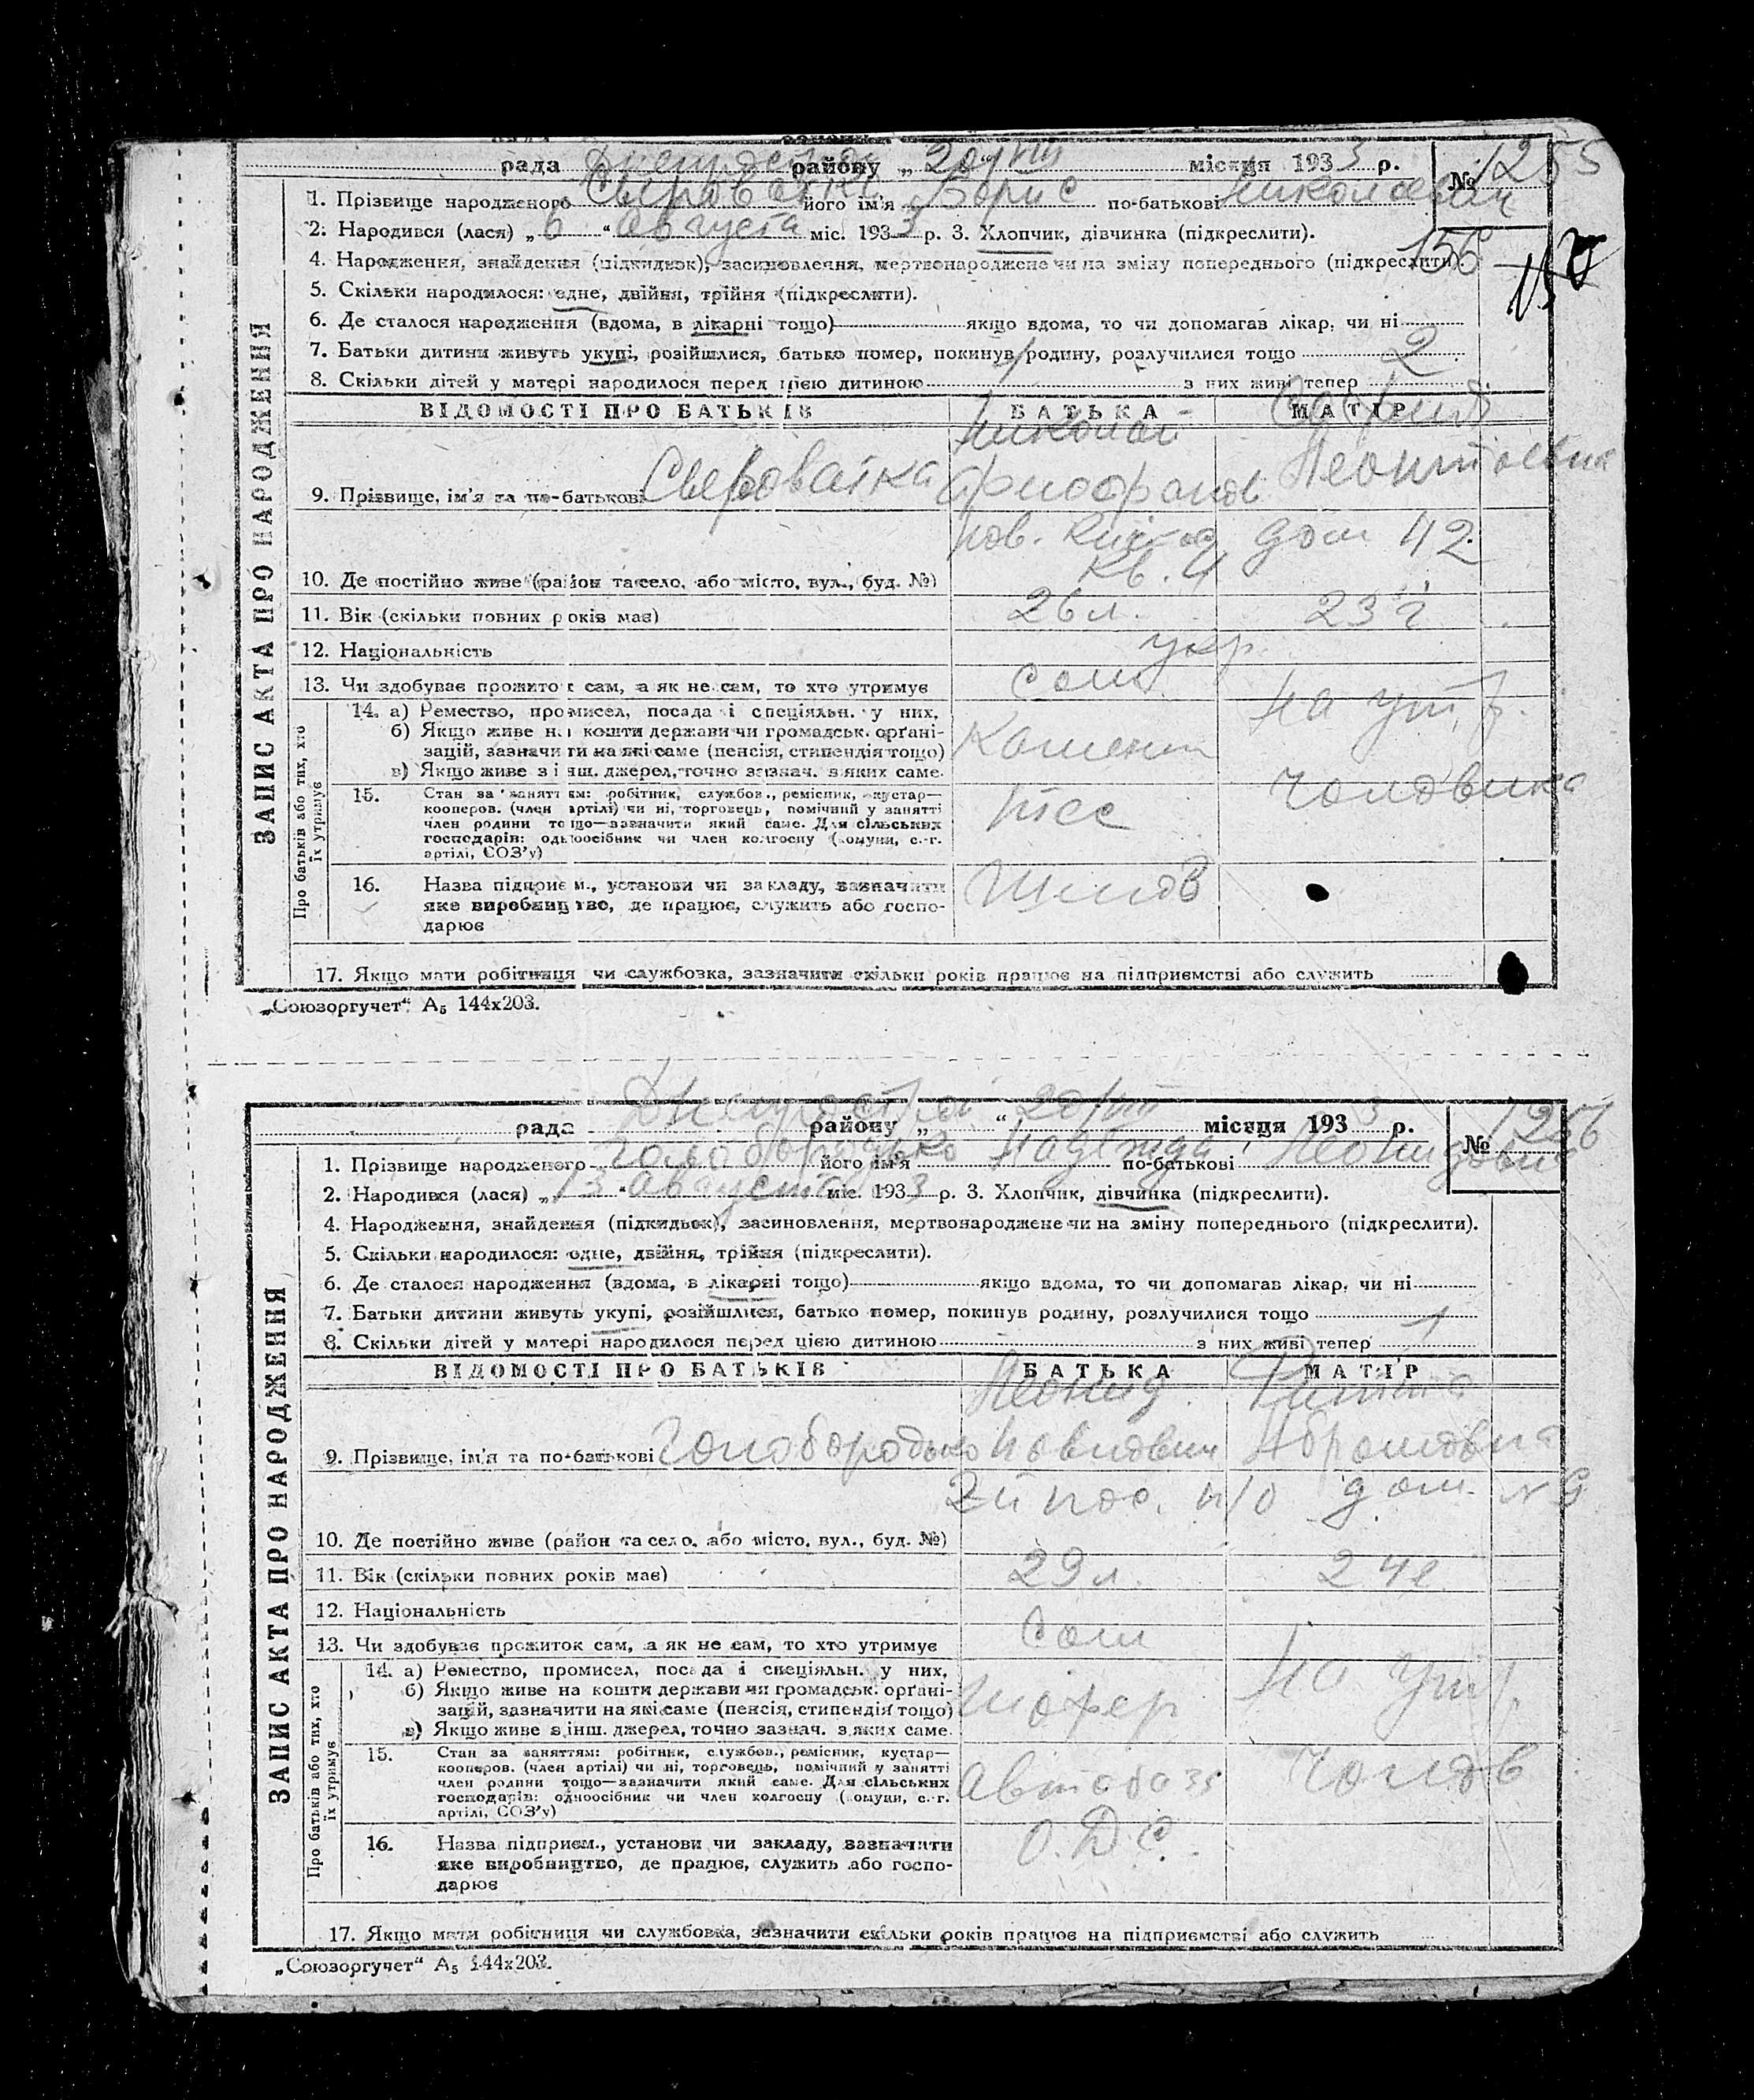 рада Днепрострой району „20/VIII“ місяця 1933 р. № 1255
1. Прізвище народженого Сыроватка його ім'я Борис по-батькові Николаевич
2. Народився (лася) „6“ августа міс. 1933 р. 3. Хлопчик, дівчинка (підкреслити).
4. Народження, знайдення (підкидьок), засиновлення, мертвонароджене чи на зміну попереднього (підкреслити). 156
5. Скільки народилося: одне, двійня, трійня (підкреслити).
6. Де сталося народження (вдома, в лікарні тощо) якщо вдома, то чи допомагав лікар, чи ні
7. Батьки дитини живуть укупі, розійшлися, батько помер, покинув родину, розлучилися тощо
8. Скільки дітей у матері народилося перед цією дитиною 1 з них живі тепер 2
ЗАПИС АКТА ПРО НАРОДЖЕННЯ
ВІДОМОСТІ ПРО БАТЬКІВ БАТЬКА МАТІР
Николай
9. Прізвище, ім'я та по-батькові Сыроватка
дом 42
кв. 4
10. Де постійно живе (район та село, або місто, вул., буд. №)
11. Вік (скільки повних років має) 26 л. 23 г
12. Національність укр.
13. Чи здобуває прожиток сам, а як не сам, то хто утримує сам
Про батьків або тих, хто їх утримує
14. а) Ремество, промисел, посада і спеціяльн. у них, на утр.
б) Якщо живе на кошти держави чи громадськ. органі-
зацій, зазначити на які саме (пенсія, стипендія тощо)
в) Якщо живе з інш. джерел, точно зазнач. з яких саме.
15. Стан за заняттям: робітник, службов., ремісник, кустар— чоловика
кооперов. (член артілі) чи ні, торговець, помічний у занятті
член родини тощо—зазначити який саме. Для сільських
господарів: одноосібник чи член колгоспу (комуни, с.-г.
артілі, СОЗ'у)
16. Назва підприєм., установи чи закладу, зазначити
яке виробництво, де працює, служить або госпо-
дарює
17. Якщо мати робітниця чи службовка, зазначити скільки років працює на підприємстві або служить
„Союзоргучет“ А5 144х203.
рада Днепрострой району „20/VIII“ місяця 1933 р. № 1256
1. Прізвище народженого Голобородько його ім'я Надежда по-батькові Леонидовна
2. Народився (лася) „13“ августа міс. 1933 р. 3. Хлопчик, дівчинка (підкреслити).
4. Народження, знайдення (підкидьок), засиновлення, мертвонароджене чи на зміну попереднього (підкреслити).
5. Скільки народилося: одне, двійня, трійня (підкреслити).
6. Де сталося народження (вдома, в лікарні тощо) якщо вдома, то чи допомагав лікар, чи ні
7. Батьки дитини живуть укупі, розійшлися, батько помер, покинув родину, розлучилися тощо
8. Скільки дітей у матері народилося перед цією дитиною з них живі тепер 1
ЗАПИС АКТА ПРО НАРОДЖЕННЯ
ВІДОМОСТІ ПРО БАТЬКІВ БАТЬКА МАТІР
Леонид
9. Прізвище, ім'я та по-батькові Голобородько Абрамовна
2й пос. п/о дом. № 9
10. Де постійно живе (район та село, або місто, вул., буд. №)
11. Вік (скільки повних років має) 29 л. 24 г
12. Національність
13. Чи здобуває прожиток сам, а як не сам, то хто утримує сам
Про батьків або тих, хто їх утримує
14. а) Ремество, промисел, посада і спеціяльн. у них, на утр.
б) Якщо живе на кошти держави чи громадськ. органі- шофер
зацій, зазначити на які саме (пенсія, стипендія тощо)
в) Якщо живе з інш. джерел, точно зазнач. з яких саме.
15. Стан за заняттям: робітник, службов., ремісник, кустар— автобаза чолов
кооперов. (член артілі) чи ні, торговець, помічний у занятті
член родини тощо—зазначити який саме. Для сільських
господарів: одноосібник чи член колгоспу (комуни, с.-г.
артілі, СОЗ'у)
16. Назва підприєм., установи чи закладу, зазначити О.Д.С.
яке виробництво, де працює, служить або госпо-
дарює
17. Якщо мати робітниця чи службовка, зазначити скільки років працює на підприємстві або служить
„Союзоргучет“ А5 144х203.